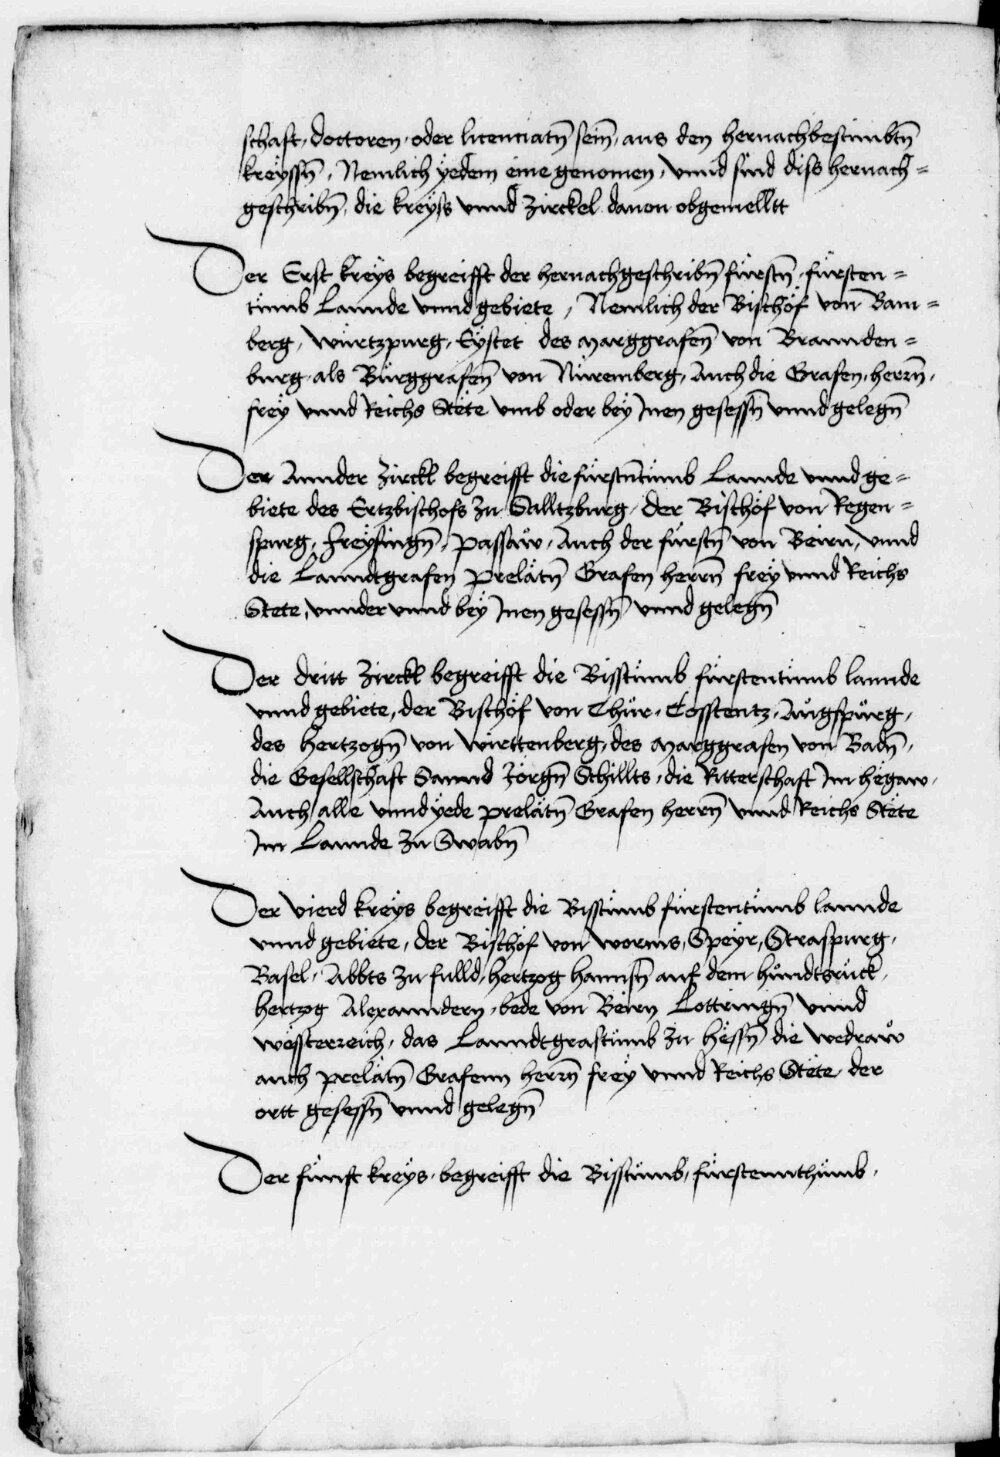 schaft, doctoren, oder licenciatn̄ sein, aus den hernachbestimbtn̄
kreyssn̄, Nemlich yedem eine genomen, vnnd sind diss hernach=
geschribn̄, die kreyss vnnd Zirckel dauon obgemelltt
Der Erst kreys begreifft der hernachgeschribn̄ fürstn̄, fürsten=
tumb Lannde vnnd gebiete, Nemlich der Bischof von Bam=
berg, Würtzpurg, Eystet des marggrafen̄ von Brannden=
burg, als Burggrafen̄ von Nüremberg, Auch die Grafen, herrn̄,
frey vnnd Reichs Stete vmb oder bey Inen gesessn̄ vnnd gelegn̄
Der Annder Zirckl begreifft die fürstntumb Lannde vnnd ge=
biete des Ertzbischofs zu Salltzburg, der Bischof von Regen=
spurg, Freysingn̄, Passaw, Auch der fürstn̄ von Beirn, vnnd
die Lanndtgrafen prelatn̄ Grafen herrn̄ frey vnnd Reichs
Stete, vnnder vnnd bey Inen gesessn̄ vnnd gelegn̄
Der dritt Zirckl begreifft die Bisstumb fürstentumb lannde
vnnd gebiete, der Bischof von Chur, Cosstentz, Augspurg,
des hertzogn̄ von Wirttenberg, des marggrafen von Badn̄,
die Gesellschaft Sannd Jörgn̄ Schillts, die Ritterschaft Im hegaw,
Auch alle vnnd yede prelatn̄ Grafen herrn̄ vnnd Reichs Stete
Im Lannde zu Swabn̄
Der vierd kreys begreifft die Bisstumb fürstentumb lannde
vnnd gebiete, der Bischof von worms, Speyr, Straspurg,
Basel, Abbts zu fulld, hertzog hannsn̄ auf dem hundtsruck,
hertzog Alexanndern, bede von Beirn Lottringn̄ vnnd
wessterreich, das Lanndtgraftumb zu hessn̄ die wedraw
auch prelatn̄ Grafenn herrn̄ frey vnnd Reichs Stete, der
ortt gesessn̄ vnnd gelegn̄
Der funft kreys, begreifft die Bisstumb, fürstennthumb,